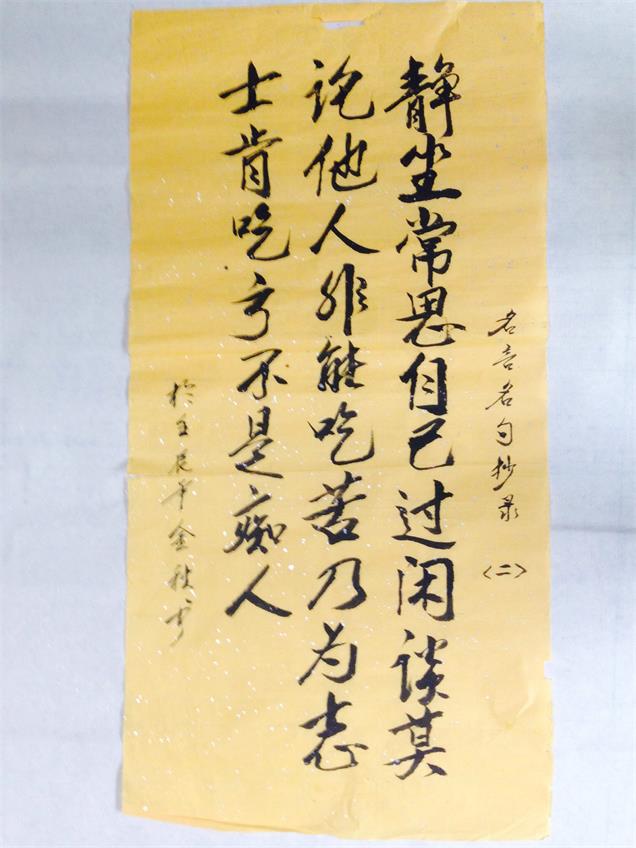 名言名句抄录
〈二〉
静坐常思自己过闲谈莫
论他人非能吃苦乃为志
士肯吃亏不是痴人
於壬辰年金秋书